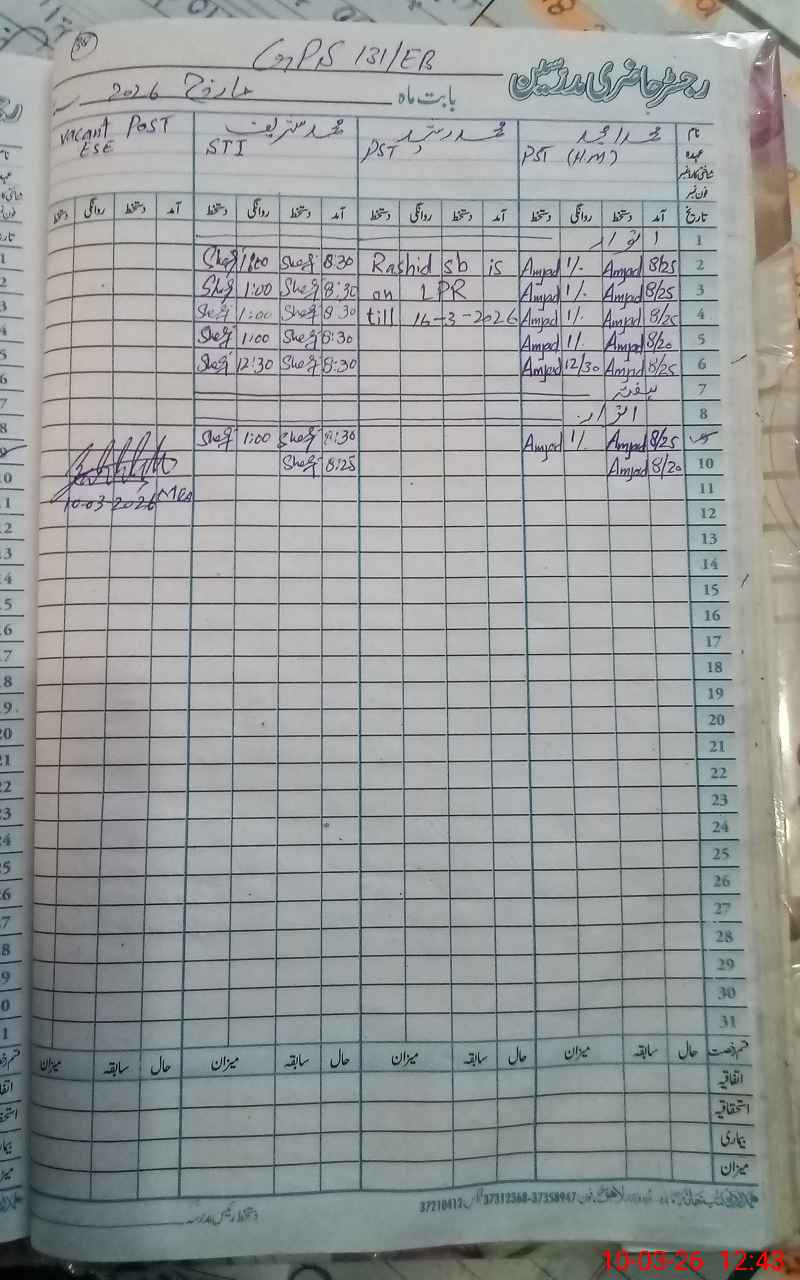 GPS 131/EB
رجسٹر حاضری مدرسین
بابت ماہ مارچ 2026ء
نام محمد امجد محمد رشید محمد شریف Vacant Post
عہدہ PST (H.M) PST STI ESE
شناختی کارڈ نمبر
فون نمبر
تاریخ آمد دستخط روانگی دستخط آمد دستخط روانگی دستخط آمد دستخط روانگی دستخط آمد دستخط روانگی دستخط
1 اتوار
2 8/25 Amjad 1/- Amjad Rashid sb is 8:30 Sharif 1:00 Sharif
3 8/25 Amjad 1/- Amjad on LPR 8:30 Sharif 1:00 Sharif
4 8/25 Amjad 1/- Amjad till 16-3-2026 8:30 Sharif 1:00 Sharif
5 8/20 Amjad 1/- Amjad 8:30 Sharif 1:00 Sharif
6 8/25 Amjad 12/30 Amjad 8:30 Sharif 12:30 Sharif
7 ہفتہ
8 اتوار
9 8/25 Amjad 1/- Amjad 8:30 Sharif 1:00 Sharif
10 8/20 Amjad 8:25 Sharif
11 10-03-2026 MEA
12
13
14
15
16
17
18
19
20
21
22
23
24
25
26
27
28
29
30
31
قسم رخصت حال سابقہ میزان حال سابقہ میزان حال سابقہ میزان حال سابقہ میزان
اتفاقیہ
استحقاقیہ
بیماری
میزان
37312368-37358947 37210412
دستخط رئیس مدرسہ
10-03-26 12:43